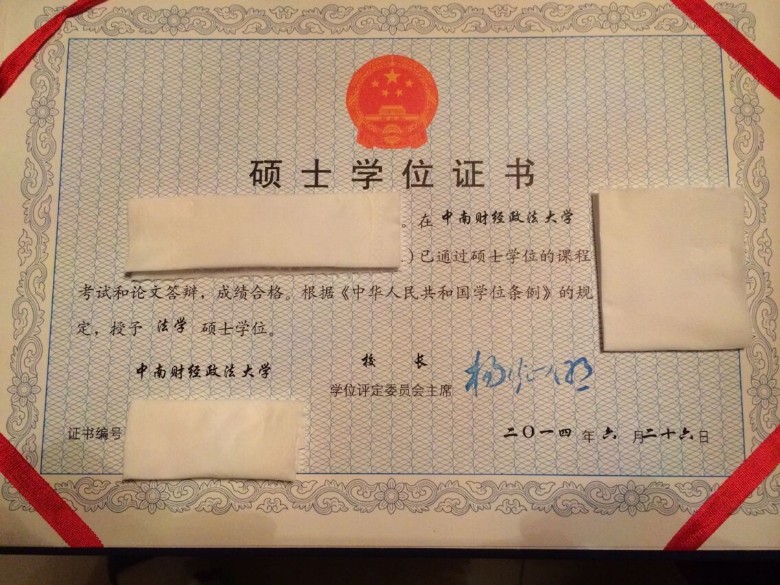 硕士学位证书
。在 中南财经政法大学
)已通过硕士学位的课程
考试和论文答辩，成绩合格。根据《中华人民共和国学位条例》的规
定，授予 法学 硕士学位。
中南财经政法大学
校 长
学位评定委员会主席
证书编号
二〇一四 年 六 月 二十六 日